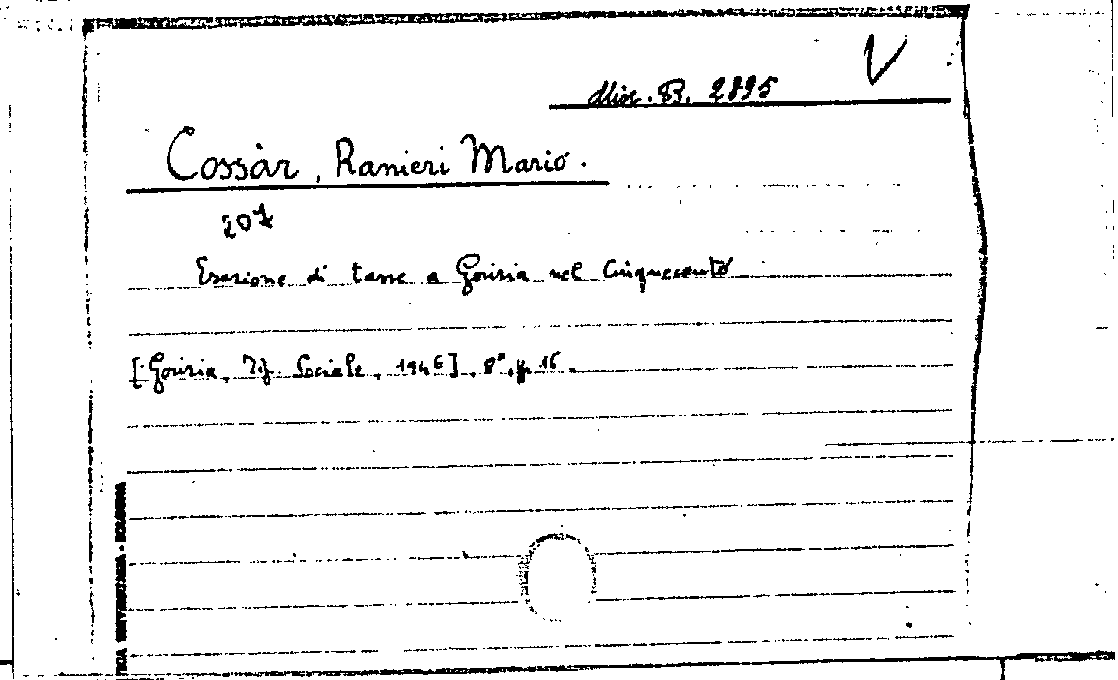 Misc. B. 2895
V
Cossàr, Ranieri Mario.
207
Esazione di tasse a Gorizia nel Cinquecento
[Gorizia, Tip. Sociale, 1946], 8°, p. 16.
TICA UNIVERSITARIA - BOLOGNA